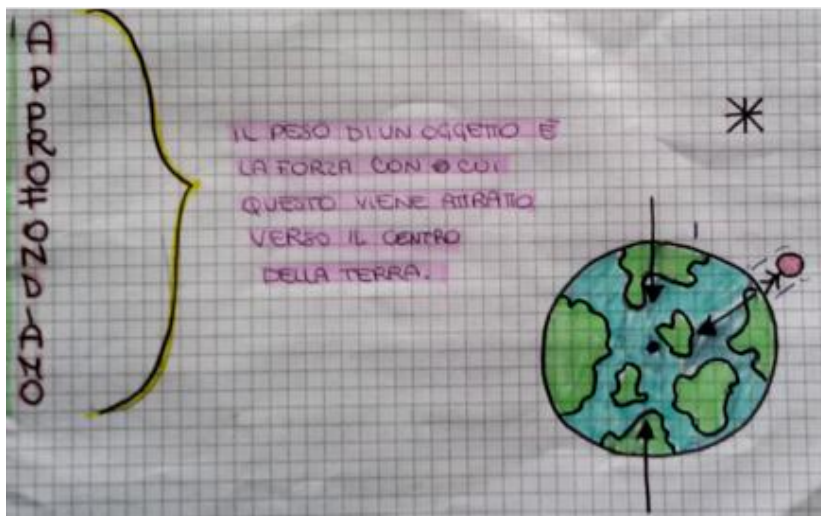 APPROFONDIAMO
IL PESO DI UN OGGETTO È
LA FORZA CON CUI
QUESTO VIENE ATTRATTO
VERSO IL CENTRO
DELLA TERRA.